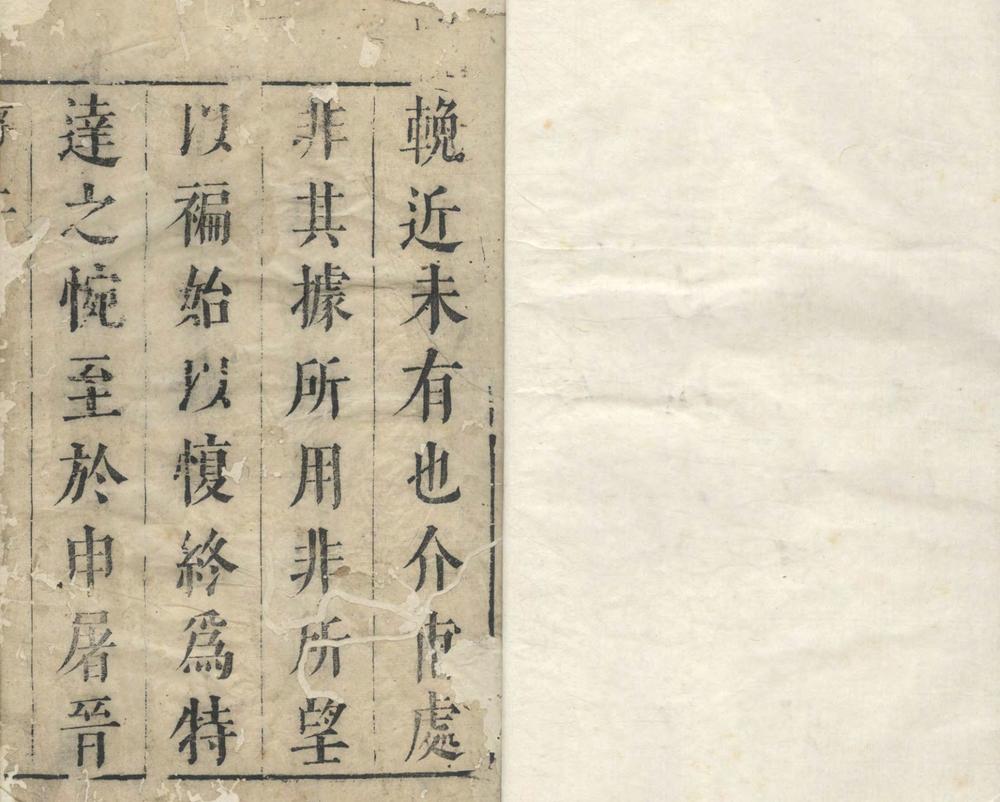 輓近未有也介甫處
非其據所用非所望
以褊始以愎終爲特
達之惋至於申屠晉